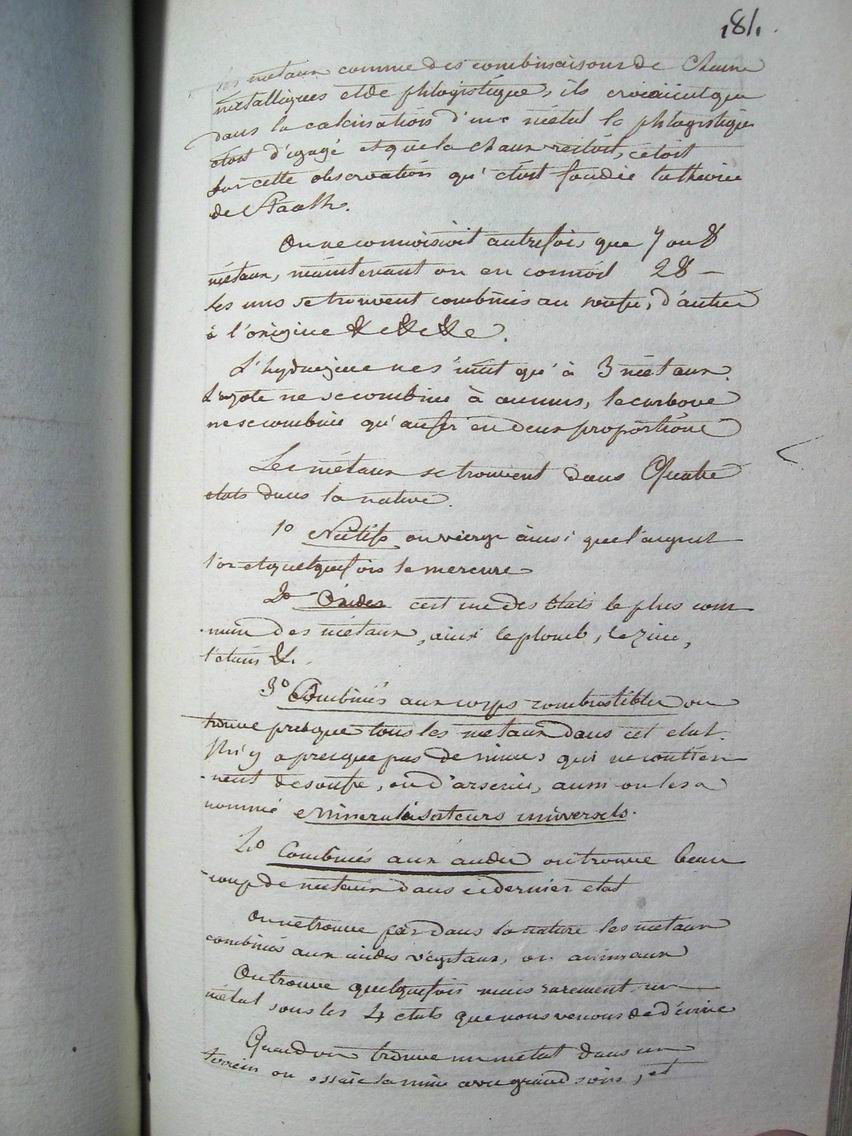 181.
les metaux comme des combinaisons de Chaux
metalliques et de phlogistique, ils croiaient que
dans la calcination d'un métal le phlogistique
étoit d'égagé et que la chaux restoit, c'etoit
sur cette observation qu'étoit fondée la théorie
de Staalh.
On ne connoissoit autrefois que 7 ou 8
métaux, maintenant on en connoit 28 –
les uns se trouvent combinés au soufre, d'autres
à l'origine &c &c &c.
L'hydrogene ne s'unit qu'à 3 métaux.
L'azote ne se combine à aucuns, le carbone
ne se combine qu'au fer en deux proportions
Les métaux se trouvent dans Quatre
etats dans la nature.
1o Natifs ou vierge ainsi que l'argent
l'or et quelquefois le mercure
2o Oxides c'est un des Etats le plus com
mun des métaux, ainsi le plomb, le zinc,
l'etain &.
3o Combinés aux corps combustibles on
trouve presque tous les metaux dans cet etat.
Il n'y a presque pas de mines qui ne contien
nent de soufre, ou d'arsenic, aussi on les a
nommé Mineralisateurs universels.
4o Combinés aux acides on trouve beau
coup de metaux dans ce dernier etat
on ne trouve pas dans la nature les metaux
combinés aux acides végétaux, ou animaux
On trouve quelquefois mais rarement un
métal sous les 4 etats que nous venons de d'écrire
Quand on trouve un metal dans un
terrein on essaie la mine avec grand soin, et